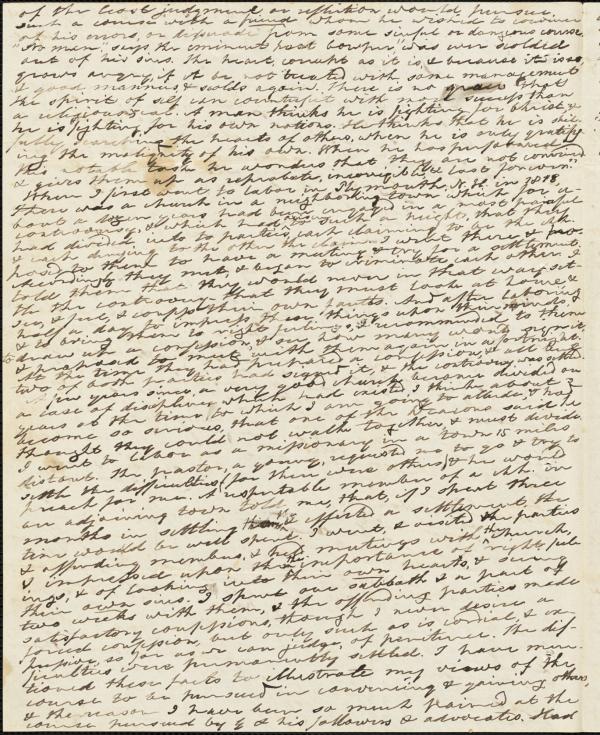 of the least judgment or reflection would pursue
such a course with a friend whom he wished to convince
of his errors, or dissuade from some sinful or dangerous course.
"No man," says the eminent poet Cowper, "was ever scolded
out of his sins. The heart, corrupt as it is, & because it is so,
grows angry if it be not treated with some management
& good manners, & scolds again. There is no grace that
the spirit of self can counterfeit with more success than
a religious zeal. A man thinks he is fighting for Christ, &
he is fighting for his own notions. He thinks that he is skil-
fully searching the hearts of others, when he is only gratify-
ing the malignity of his own. When he has performed
this notable task he wonders that they are not convinced
& gives them up as reprobate, incorrigible & lost forever."
When I first went to labor in Plymouth, N.H. in 1818,
there was a church in a neighboring town which for a-
bout a dozen years had been engaged in a most painful
controversy, & which had risen to such a height, that they
had divided into two parties, each claiming to be the chh.
& each denying to the other the claim. I went there & pro-
posed to them to have a meeting & try for a settlement.
Accordingly they met, & began to criminate each other. I
told them that they would never in that way set-
tle the controversy; that they must look at home, &
see, & feel, & confess their own faults. And after laboring
half a day to impress these things upon their minds, &
& to bring them to right feelings, I recommended to them
to draw up a confession, & see how many would sign it,
& proposed to meet with them again in a fortnight.
At the time they had prepared a confession, & all but
two of both parties had signed it, & the controversy was settled.
A few years since a very good church became divided on
a case of discipline, which had existed I think about 3
years at the time, to which I am going to allude, & had
become so serious, that one of the Deacons said, he
thought they could not walk together, & must divide.
I went to labor as a missionary in a town 15 miles
distant. The pastor, a young, requested me to go & try to
settle the difficulties, for there were others, & he would
preach for me. A respectable member of a chh. in
an adjoining town told me, that, if I spent three
months in settling them & effected a settlement the
time would be well spent. I went, & visited the parties
& offending members, & had meetings with the church,
& impressed upon them the importance of right feel-
ings, & of looking into their own hearts, & seeing
their own sins. I spent one sabbath & a part of
two weeks with them, & the offending parties made
satisfactory confessions, though I never desire a
forced confession, but only such as is cordial, & ex-
pressive, so far as we can judge, of penitence. The dif-
ficulties were permanently settled. I have men-
tioned these facts to illustrate my views of the
course to be pursued in convincing & gaining others,
& the reason I have been so much pained at the
course pursued by G. & his followers & advocates. Had